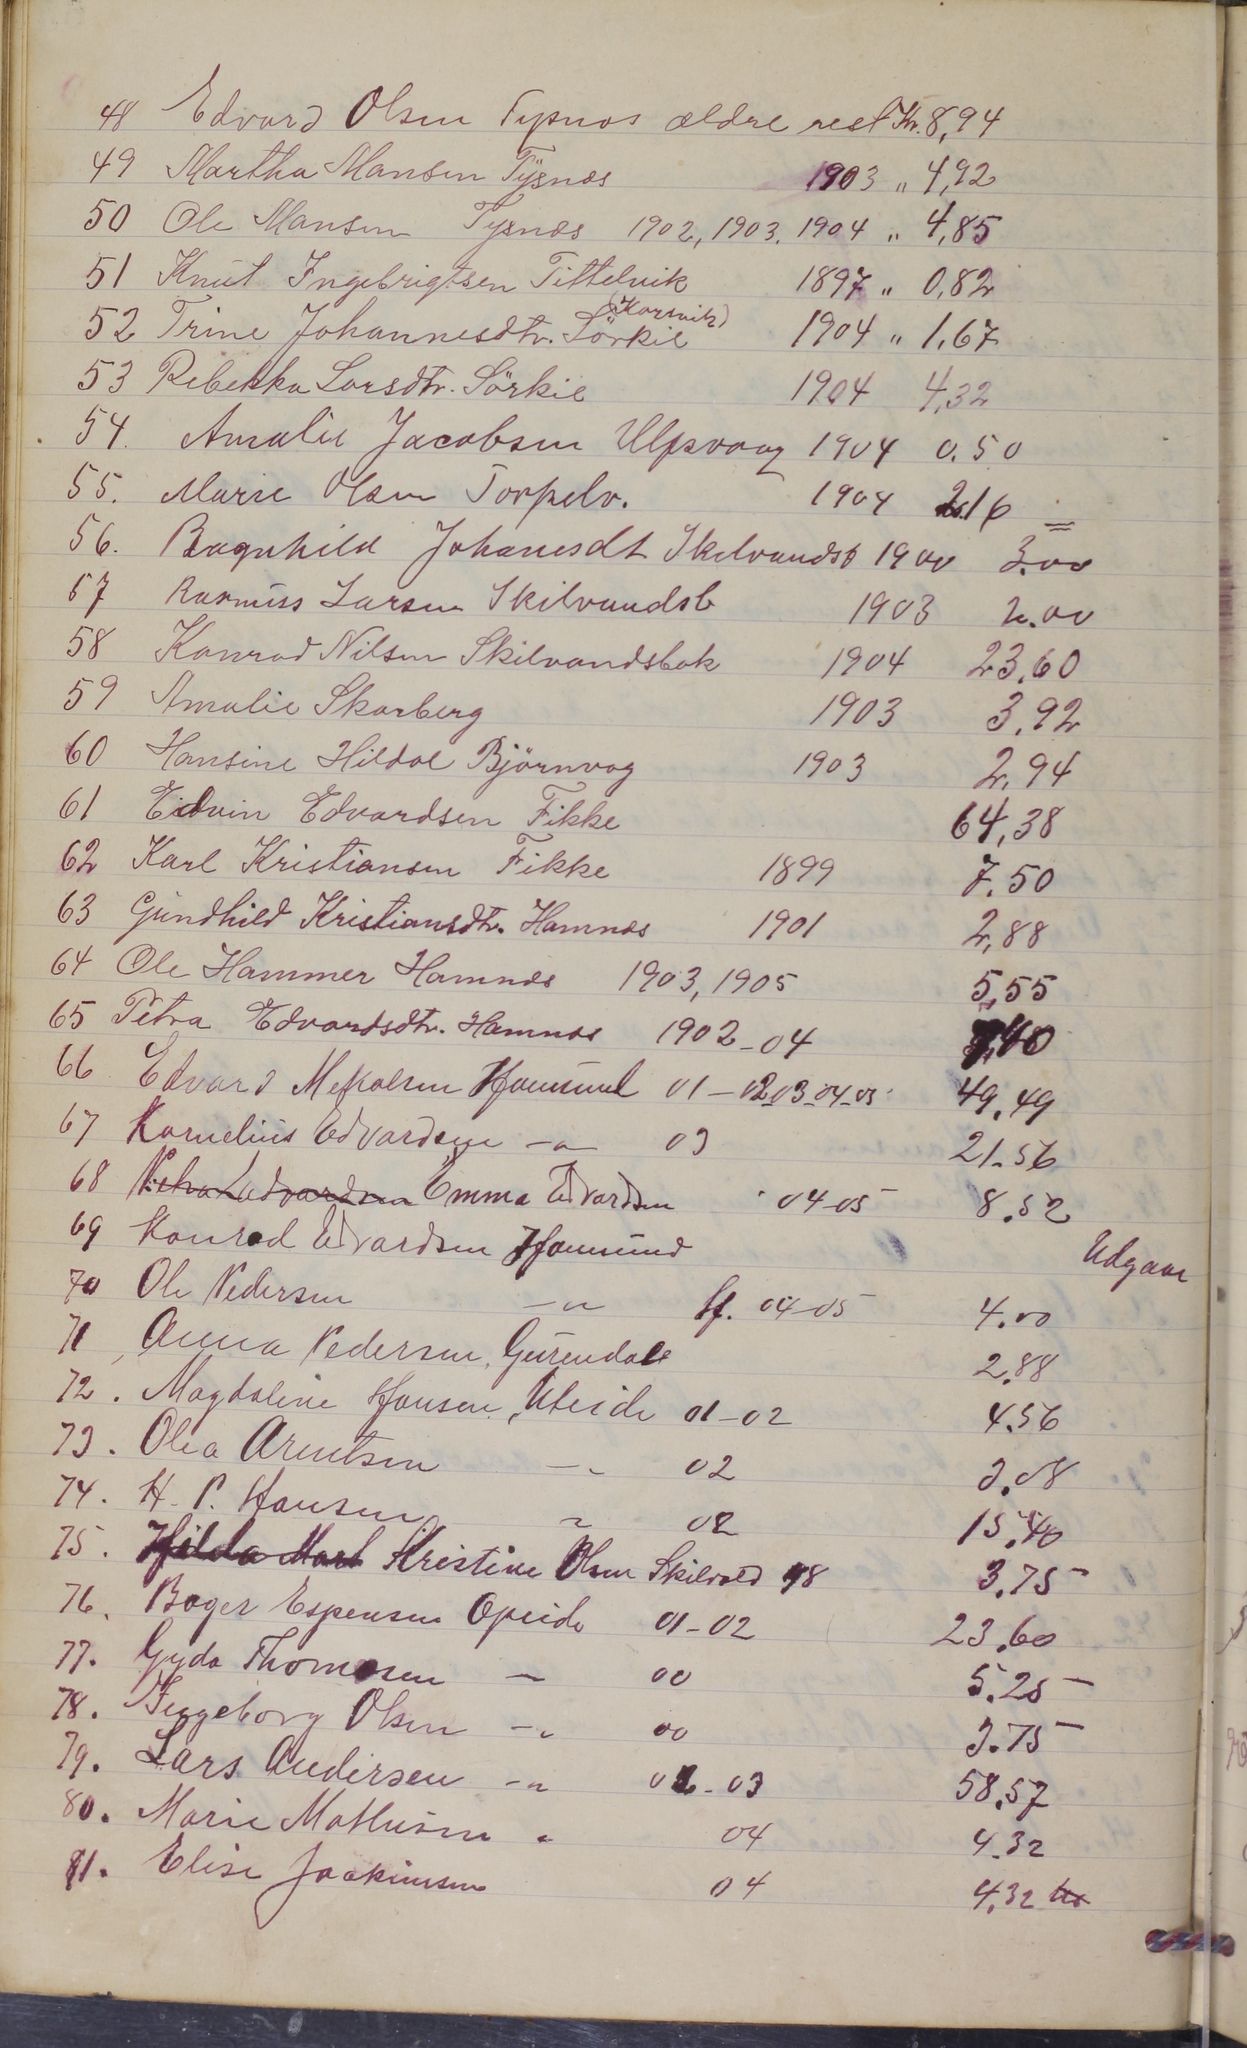 48 Edvard Olsen Tysnes ældre rest Kr. 8,94
49 Martha Mansen Tysnes 1903 " 4,92
50 Ole Mansen Tysnes 1902, 1903, 1904 " 4,85
51 Knut Ingebrigtsen Tittelvik 1897 " 0,82
(Korsvik)
52 Trine Johannesdtr. Sörkil 1904 " 1,67
53 Rebekka Larsdtr. Sörkil 1904 4,32
54. Amalie Jacobsen Ulpsvaag 1904 0.50
55. Marie Olsen Torpelv. 1904 2.16 =
56. Ragnhild Johanesdt Skelvandsb 1900 3.00
57 Rasmuss Larsen Skilvandsb 1903 2.00
58 Konrad Nilsen Skilvandsbak 1904 23,60
59 Amalie Skarberg 1903 3,92
60 Hansine Hildal Björnvag 1903 2,94
61 Edvin Edvardsen Fikke 64,38
62 Karl Kristiansen Fikke 1899 7.50
63 Gundhild Kristiansdtr. Hamnes 1901 2,88
64 Ole Hammer Hamnes 1903, 1905 5,55
65 Petra Edvardsdtr. Hamnes 1902-04
66 Edvard Mikalsen Hamsund 01-02-03-04-05 49.49
67 Kornelius Edvardsen -"- 03 21.56
68 Petra Edvardsen Emma Edvardsen 04-05 8.52
69 Konrad Edvardsen Hamsund Udgaar
70 Ole Pedersen -"- ff. 04-05 4.00
71 Anna Pedersen, Geirendale 2.88
72. Magdaline Hansen, Uteide 01-02 4.56
73. Olea Arntsen -"- 02 3.08
74. H. P. Hansen " 02 15.40
75. Hilda Mart Kristine Olsen Skilvad 98 3.75-
76. Boger Espensen Opeide 01-02 23.60
77. Gyda Thomesen - 00 5.25-
78. Ingeborg Olsen -"- 00 3.75-
79. Lars Andersen -"- 02-03 58.57
80. Marie Mathisen " 04 4.32
81. Elise Joakimsen 04 4.32